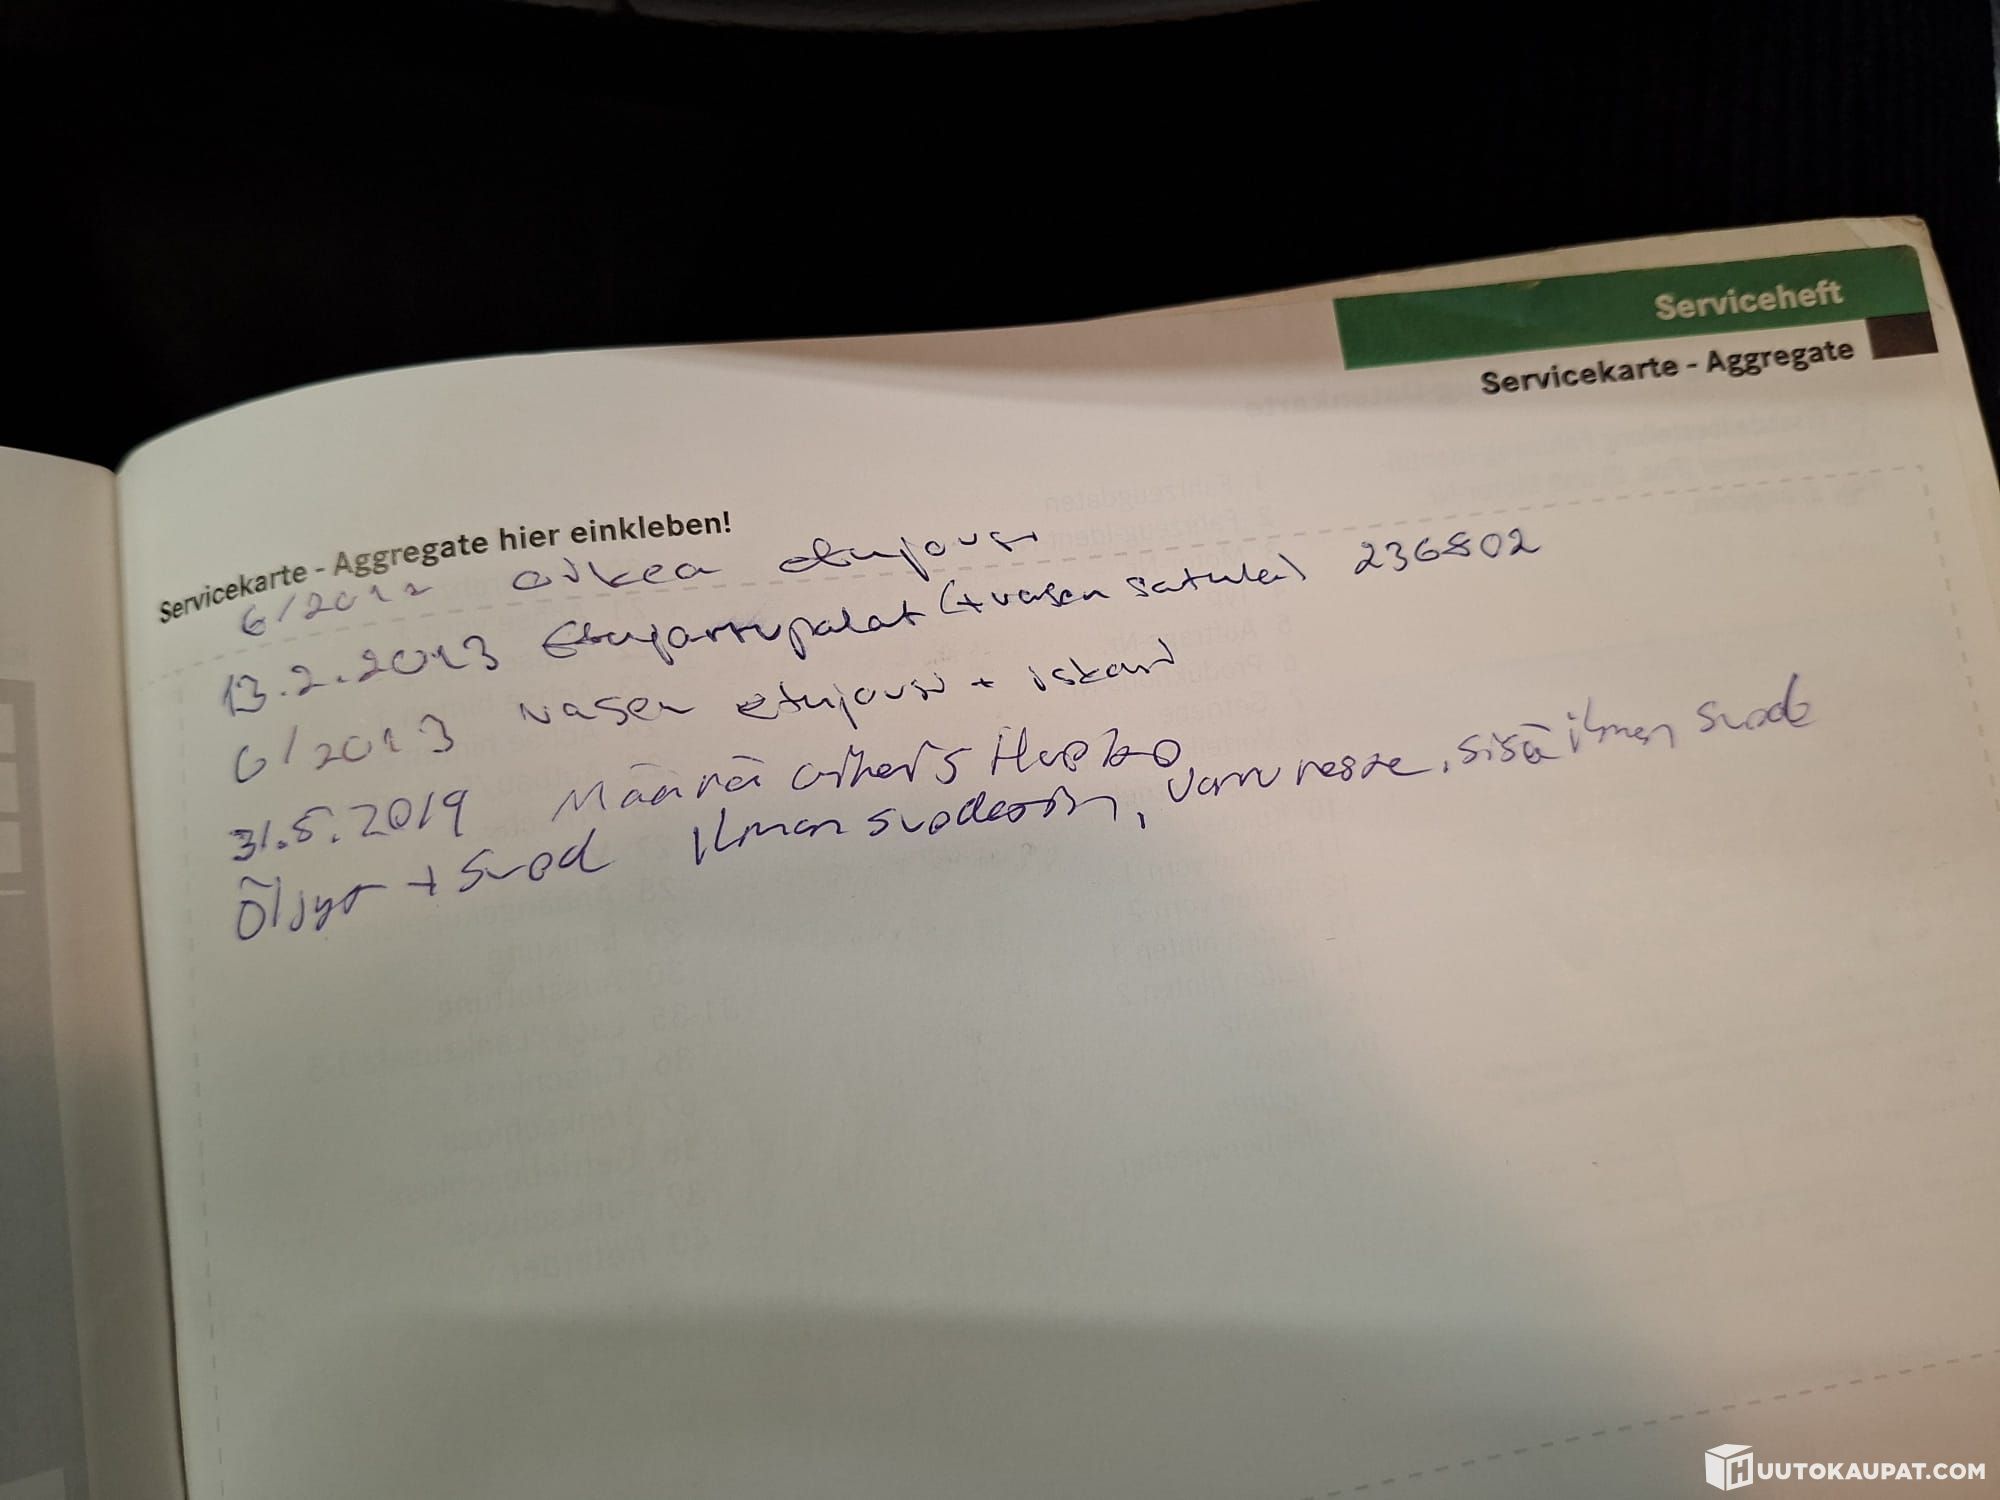 Serviceheft
Servicekarte - Aggregate
Servicekarte - Aggregate hier einkleben!
6/2012 oikea etujousi
13.2.2013 Etujarrupalat (+vasen satula) 236802
6/2013 vasen etujousi + iskari
31.5.2019 Määrä
Öljyt + suod ilman suodatin, jarruneste, sisä ilman suod
HUUTOKAUPAT.COM